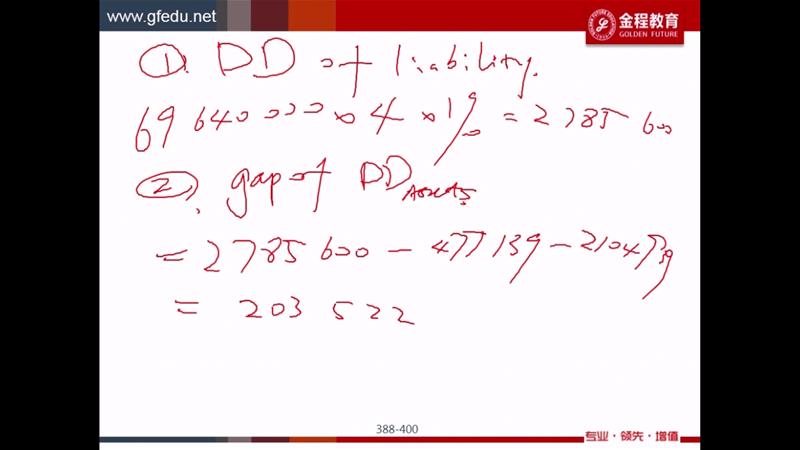 www.gfedu.net
金程教育
GOLDEN FUTURE
①. DD of liability.
69 640 000 × 4 × 1% = 2 785 600
②. gap of DD Assets
= 2785 600 - 477 139 - 2104 939
= 203 522
388-400
专业·领先·增值